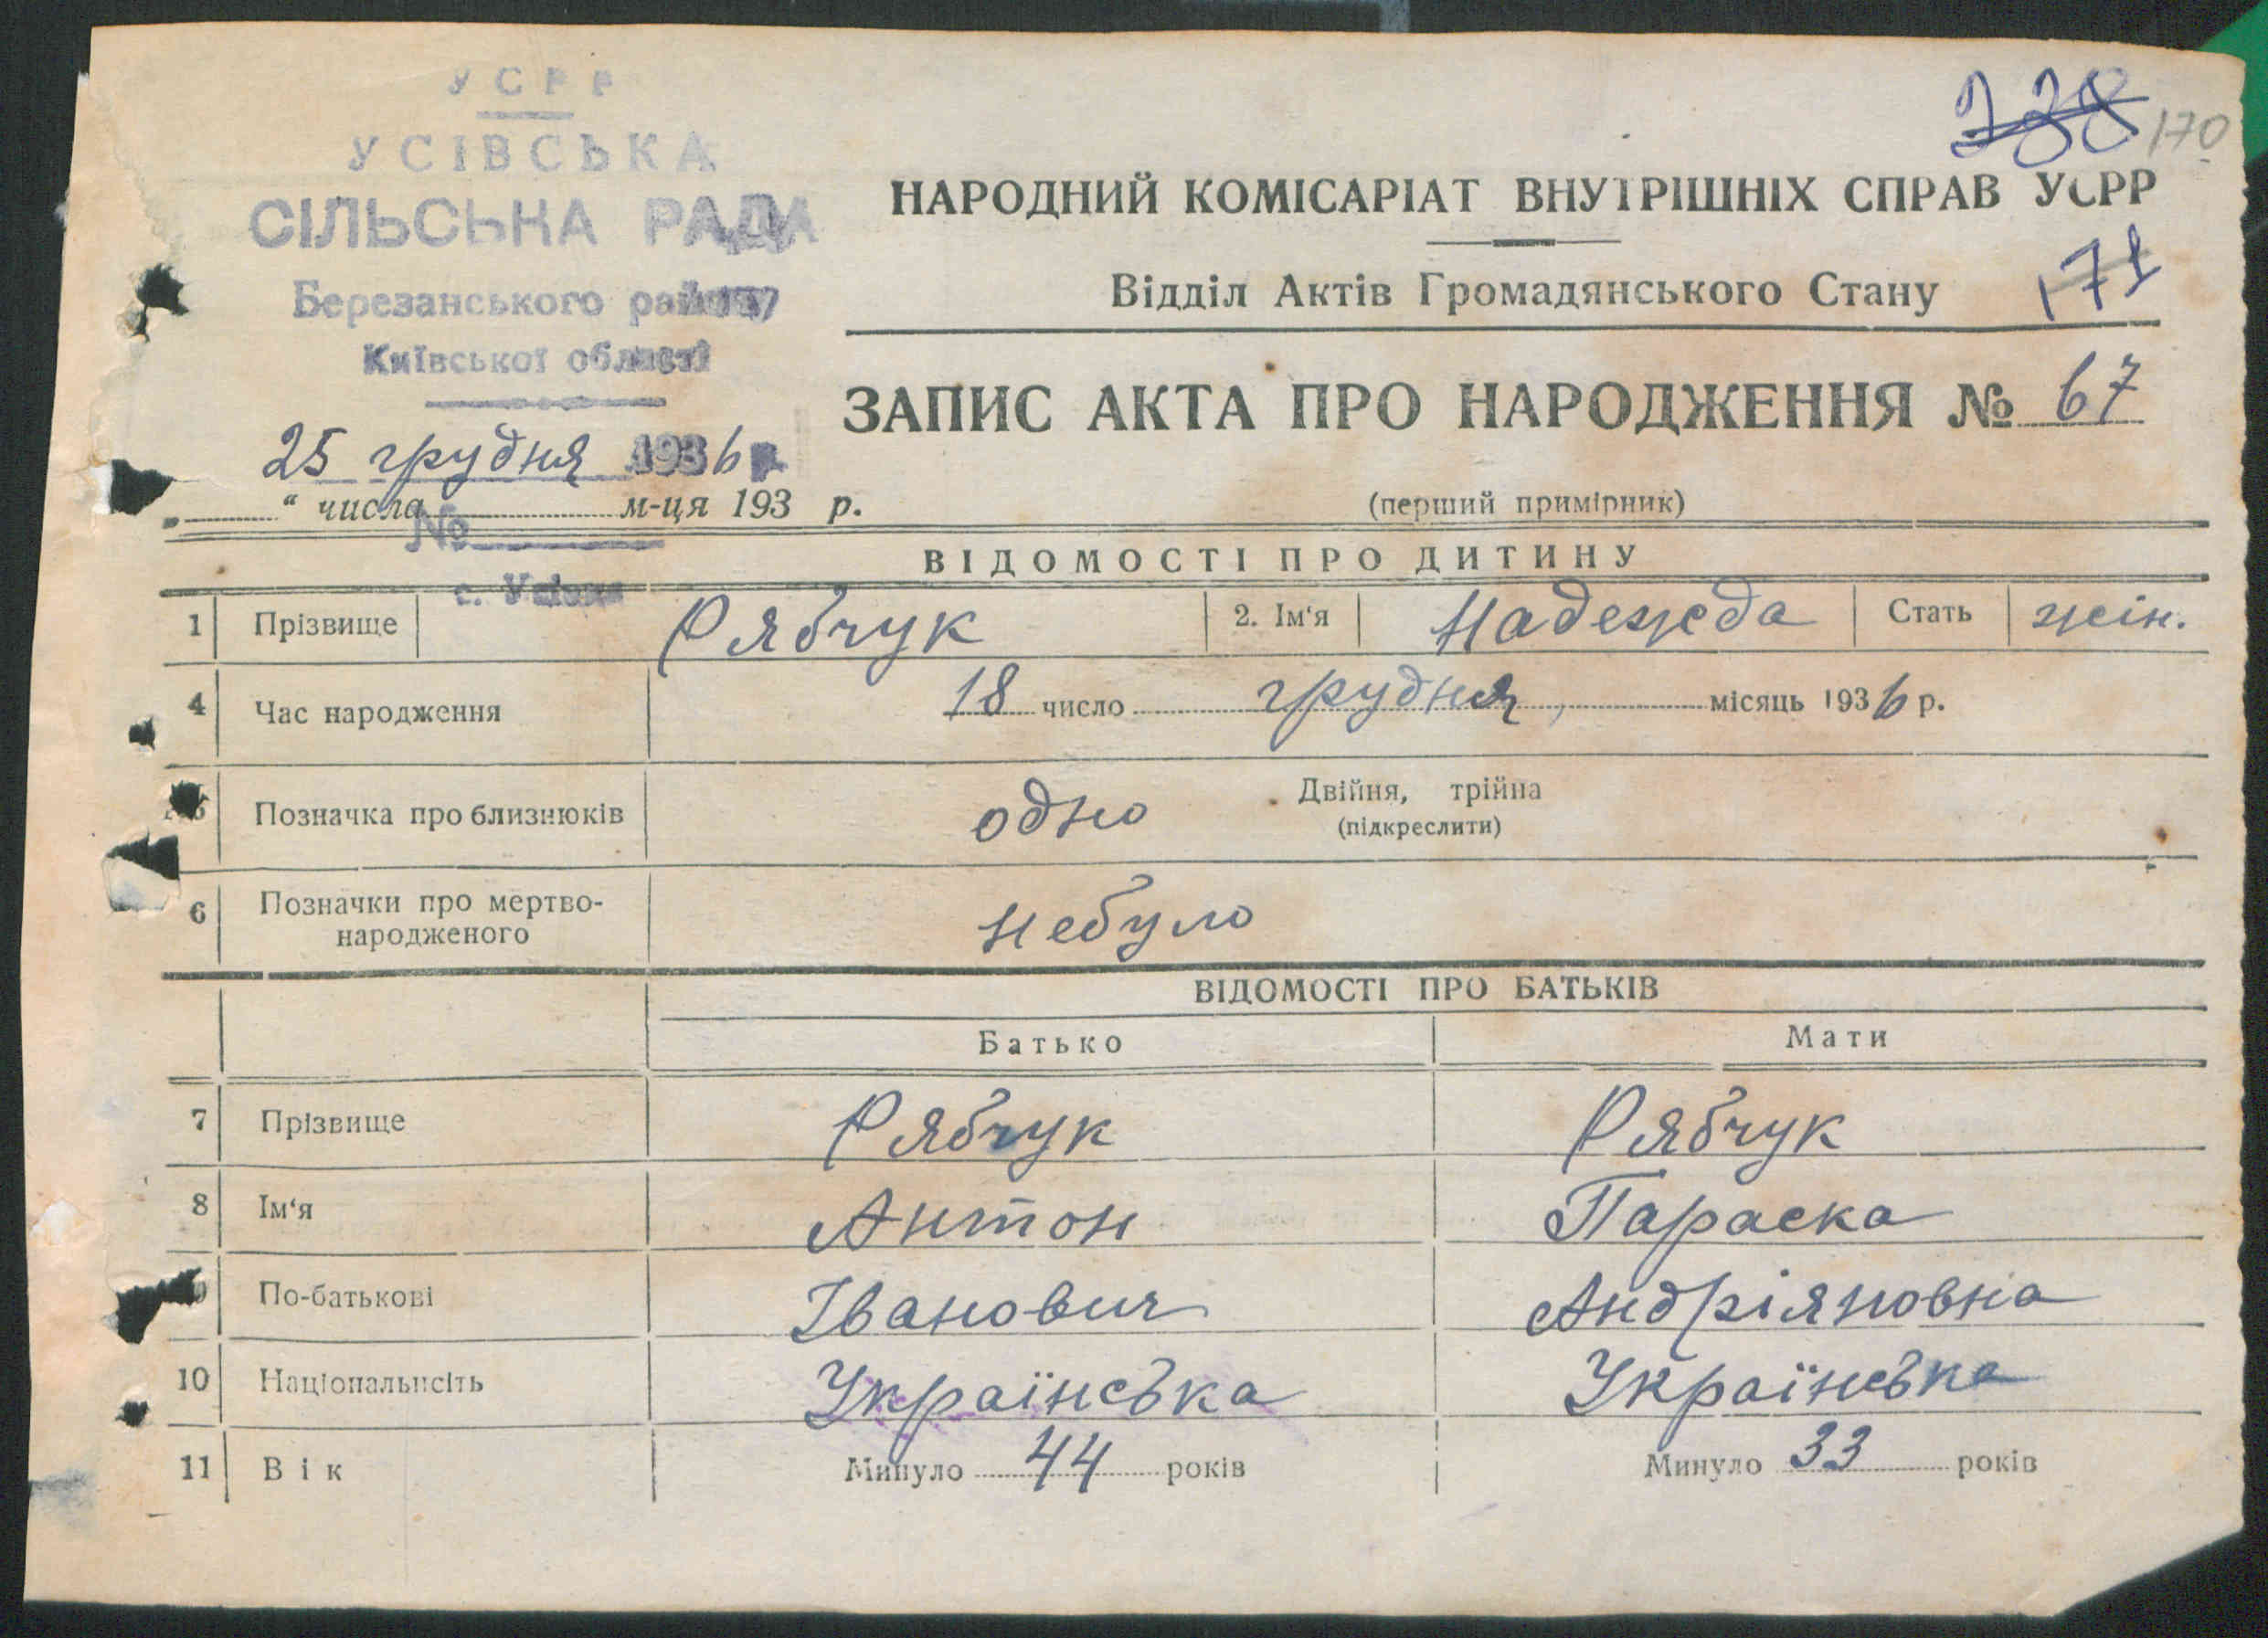 УСРР
УСІВСЬКА
СІЛЬСЬКА РАДА
Березанського району
Київської області
25 грудня 1936 р.
" числа м-ця 193 р.
№
с. Усівка
238 170
НАРОДНИЙ КОМІСАРІАТ ВНУТРІШНІХ СПРАВ УСРР
Відділ Актів Громадянського Стану 171
ЗАПИС АКТА ПРО НАРОДЖЕННЯ № 67
(перший примірник)
ВІДОМОСТІ ПРО ДИТИНУ
1 Прізвище Рябчук 2. Ім'я Надежда Стать жін.
4 Час народження 18 число грудня, місяць 1936 р.
5 Позначка про близнюків одно Двійня, трійна
(підкреслити)
6 Позначки про мертво-
народженого небуло
ВІДОМОСТІ ПРО БАТЬКІВ
Батько Мати
7 Прізвище Рябчук Рябчук
8 Ім'я Антон Параска
9 По-батькові Іванович Андріяновна
10 Національність Українська Українська
11 Вік Минуло 44 років Минуло 33 років